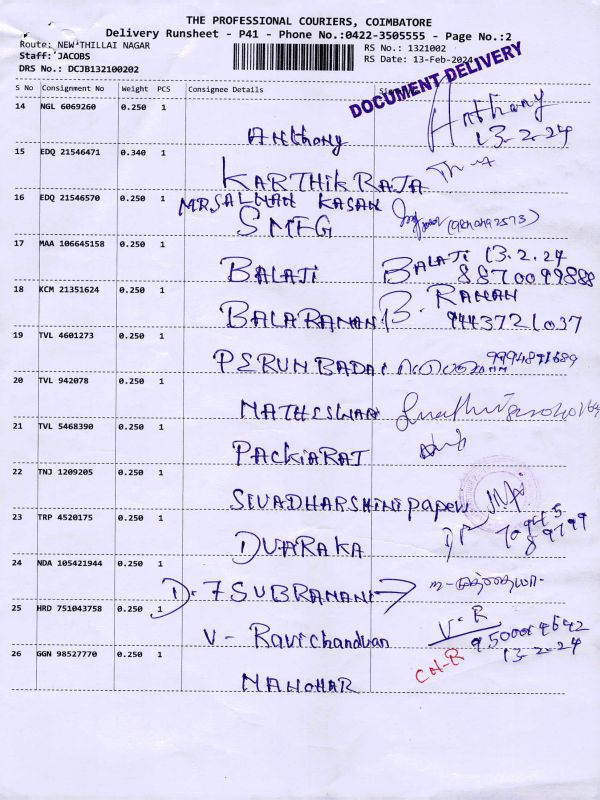 THE PROFESSIONAL COURIERS, COIMBATORE
Delivery Runsheet - P41 - Phone No.:0422-3505555 - Page No.:2
Route: NEW THILLAI NAGAR
RS No.: 1321002
Staff: JACOBS
RS Date: 13-Feb-2024
DRS No.: DCJB132100202
DOCUMENT DELIVERY
S No Consignment No Weight PCS Consignee Details
14 NGL 6069260 0.250 1
Anthony Anthony
13-2-24
15 EDQ 21546471 0.340 1
KARTHIK RAJA
16 EDQ 21546570 0.250 1
MR SALMAN KASAN
SMFG
17 MAA 106645158 0.250 1
BALATI BALATI 13.2.24
8870099888
18 KCM 21351624 0.250 1
BALARAMAN B. RAMAN
9443721037
19 TVL 4601273 0.250 1
PERUNBADAI
20 TVL 942078 0.250 1
MATHESWAN
21 TVL 5468390 0.250 1
PACKIARAT
22 TNJ 1209205 0.250 1
SIVADHARSHINI papers
23 TRP 4520175 0.250 1
DVARAKA
24 NDA 105421944 0.250 1
D. 7 SUBRAMANI
25 HRD 751043758 0.250 1
V - Ravichandran V. R
13-2-24
CH-R
26 GGN 98527770 0.250 1
MANOHAR